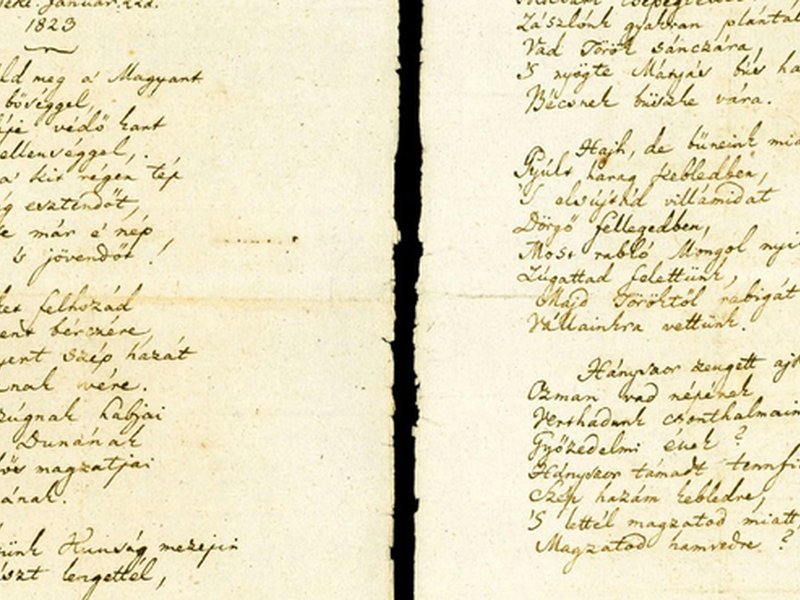 Január. 22d.
1823
meg a' Magyart
bőséggel,
védő kart
ellenséggel,
a' kit régen tép
esztendőt,
már e' nép
's jövendőt!
felhozád
bérczére,
szép hazát
vére.
zúgnak habjai
Dunának
magzatjai
Hunság mezején
lengettél,
Zászlónk gyakran plántál
Vad Török sánczára,
'S nyögte Mátyás bús ha
Bécsnek büszke vára.
Hajh, de bűneink mia
Gyúlt harag kebledben,
'S elsújtád villámidat
Dörgő fellegedben,
Most rabló Mongol nyi
Zúgattad felettünk,
Majd Töröktől rabigát
Vállainkra vettünk.
Hányszor zengett ajk
Ozman vad népének
Vert hadunk csonthalmain
Győzedelmi ének?
Hányszor támadt tennfi
Szép hazám kebledre,
'S lettél magzatod miatt
Magzatod hamvedre?